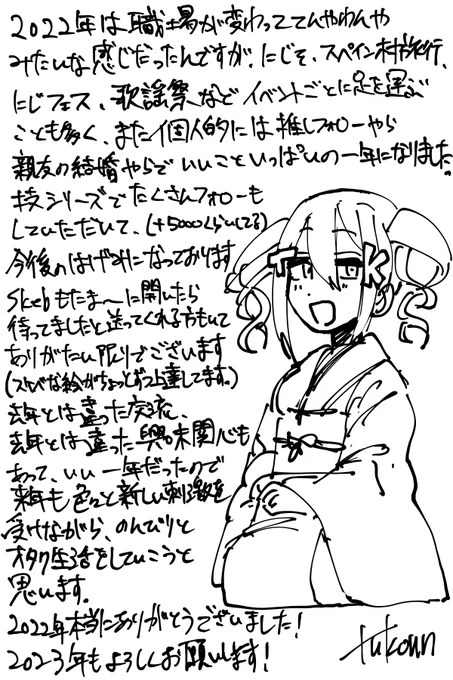 2022年は職場が変わっててんやわんや
みたいな感じだったんですが、にじそ、スペイン村旅行、
にじフェス、歌謡祭などイベントごとに足を運ぶ
ことも多く、また個人的には推しフォローやら
親友の結婚やらでいいこといっぱいの一年になりました。
技シリーズでたくさんフォローも
していただいて、(+5000くらいしてる)
今後のはげみになっております
Skebもたま〜に開いたら
待ってましたと送ってくれる方もいて
ありがたい限りでございます
(スケベな絵がちょっとずつ上達してます。)
去年とは違った交流、
去年とは違った興味関心も
あって、いい一年だったので
来年も色々と新しい刺激を
受けながら、のんびりと
オタク生活をしていこうと
思います。
2022年本当にありがとうございました!
2023年もよろしくお願いします!
T K
tukoun